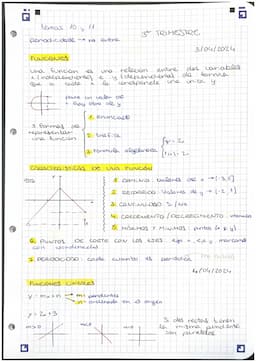 Temas 10 y 11
3er TRIMESTRE
periodicidad → no entra
3/04/2024
FUNCIONES
una función es una relación entre dos variables
x (independiente) e y (dependiente) de forma
que a cada x le corresponde una única y
para un valor de
x hay dos de y
3 formas de
representar una
función
1. Enunciado
2. Gráfica
3. Fórmula algebraica
CARACTERÍSTICAS DE UNA FUNCIÓN
1. DOMINIO: valores de x →
2. RECORRIDO: valores de y →
3. CONTINUIDAD: SI / NO
4. CRECIMIENTO / DECRECIMIENTO
5. MÁXIMOS Y MÍNIMOS: puntos (x, y)
6. PUNTOS DE CORTE CON LOS EJES: eje
con coordenadas
7. PERIODICIDAD: cada cuánto es periódica
4/04/2024
FUNCIONES LINEALES
y = mx + n
m = pendiente
n = ordenada en el origen
y = 2x + 3
m>0
m<0
m=0
Si dos rectas tienen
la misma pendiente
son paralelas